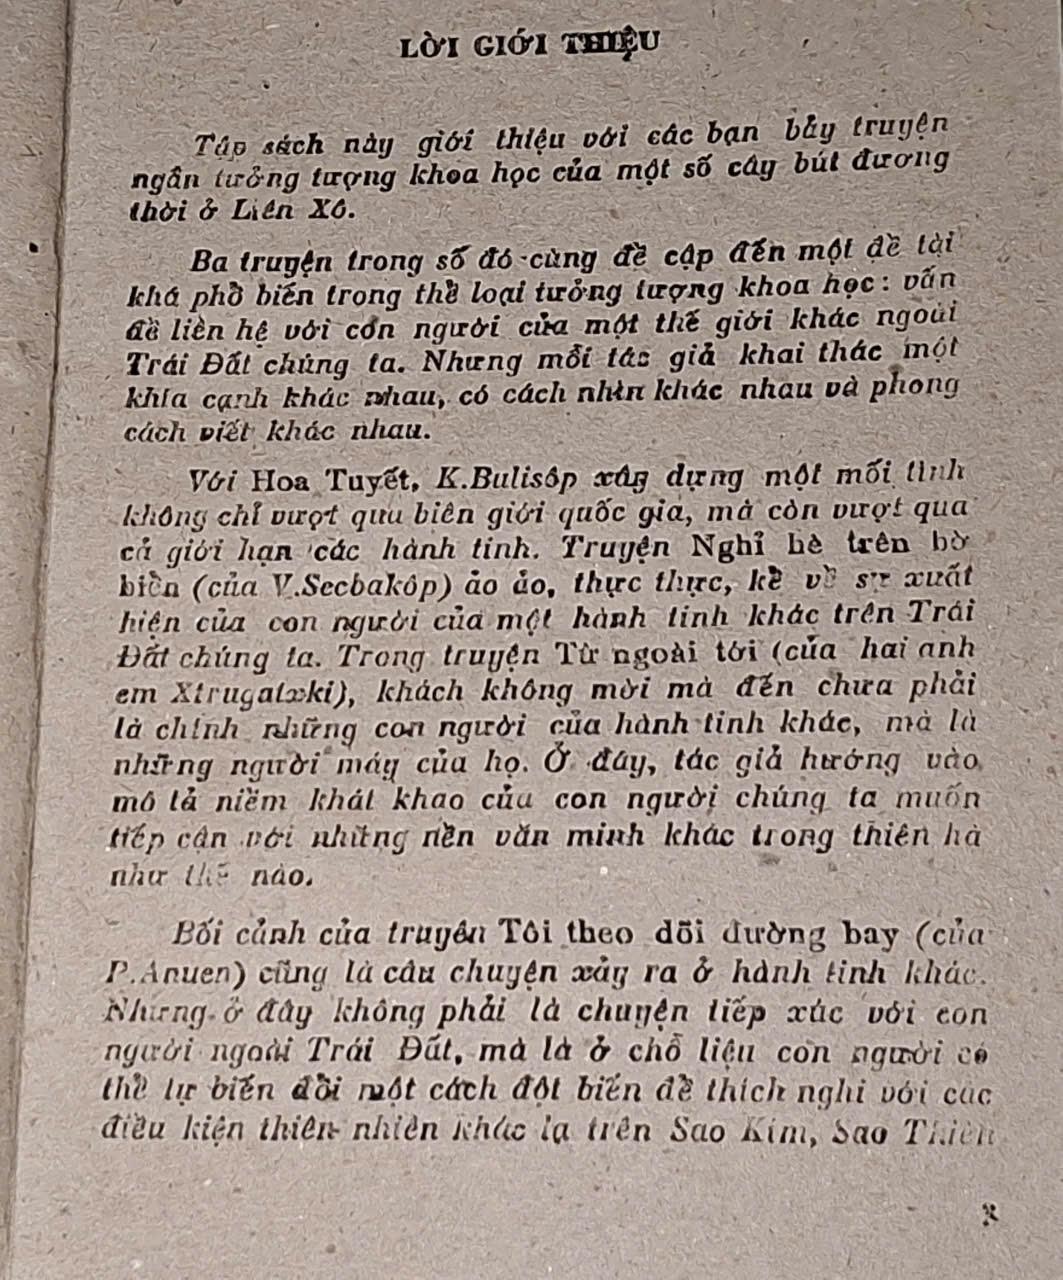 LỜI GIỚI THIỆU
Tập sách này giới thiệu với các bạn bảy truyện
ngắn tưởng tượng khoa học của một số cây bút đương
thời ở Liên Xô.
Ba truyện trong số đó cùng đề cập đến một đề tài
khá phổ biến trong thể loại tưởng tượng khoa học: vấn
đề liên hệ với con người của một thế giới khác ngoài
Trái Đất chúng ta. Nhưng mỗi tác giả khai thác một
khía cạnh khác nhau, có cách nhìn khác nhau và phong
cách viết khác nhau.
Với Hoa Tuyết, K.Bulisôp xây dựng một mối tình
không chỉ vượt qua biên giới quốc gia, mà còn vượt qua
cả giới hạn các hành tinh. Truyện Nghỉ hè trên bờ
biển (của V.Secbakôp) ảo ảo, thực thực, kể về sự xuất
hiện của con người của một hành tinh khác trên Trái
Đất chúng ta. Trong truyện Từ ngoài tới (của hai anh
em Xtrugatxki), khách không mời mà đến chưa phải
là chính những con người của hành tinh khác, mà là
những người máy của họ. Ở đây, tác giả hướng vào
mô tả niềm khát khao của con người chúng ta muốn
tiếp cận với những nền văn minh khác trong thiên hà
như thế nào.
Bối cảnh của truyện Tôi theo dõi đường bay (của
P.Anuen) cũng là câu chuyện xảy ra ở hành tinh khác.
Nhưng ở đây không phải là chuyện tiếp xúc với con
người ngoài Trái Đất, mà là ở chỗ liệu con người có
thể tự biến đổi một cách đột biến để thích nghi với các
điều kiện thiên nhiên khác lạ trên Sao Kim, Sao Thiên